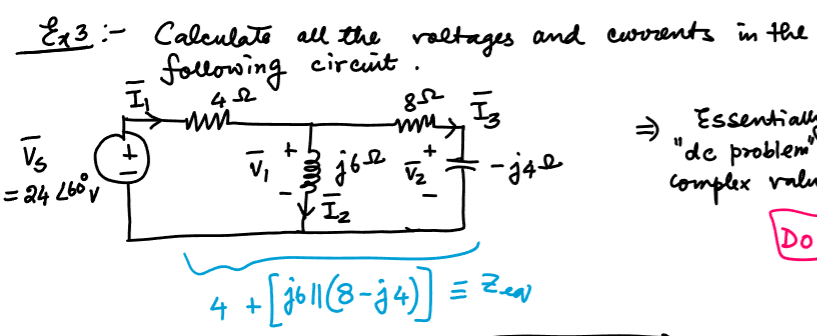 Ex3 :- Calculate all the voltages and currents in the
following circuit .
I̅₁ 4Ω 8Ω I̅₃
V̅s = 24∠60° V
+
-
V̅₁ + - j6Ω
I̅₂
V̅₂ + - -j4Ω
⇒ Essentially
"dc problem"
complex
Do
4 + [j6||(8-j4)] ≡ Zeq